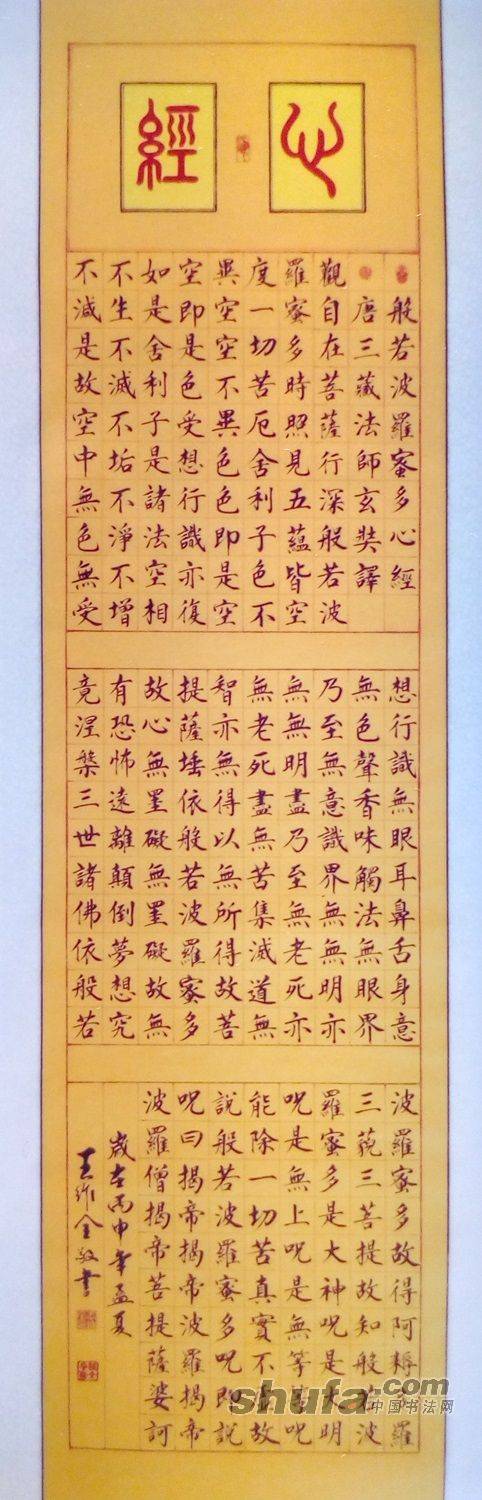 心經
般若波羅蜜多心經
唐三藏法師玄奘譯
觀自在菩薩行深般若波
羅蜜多時照見五蘊皆空
度一切苦厄舍利子色不
異空空不異色色即是空
空即是色受想行識亦復
如是舍利子是諸法空相
不生不滅不垢不淨不增
不減是故空中無色無受
想行識無眼耳鼻舌身意
無色聲香味觸法無眼界
乃至無意識界無無明亦
無無明盡乃至無老死亦
無老死盡無苦集滅道無
智亦無得以無所得故菩
提薩埵依般若波羅蜜多
故心無罣礙無罣礙故無
有恐怖遠離顛倒夢想究
竟涅槃三世諸佛依般若
波羅蜜多故得阿耨多羅
三藐三菩提故知般若波
羅蜜多是大神呪是大明
呪是無上呪是無等等呪
能除一切苦真實不虛故
說般若波羅蜜多呪即說
呪曰揭帝揭帝波羅揭帝
波羅僧揭帝菩提薩婆訶
歲在丙申年孟夏
王作全敬書
shufa.com
中国书法网